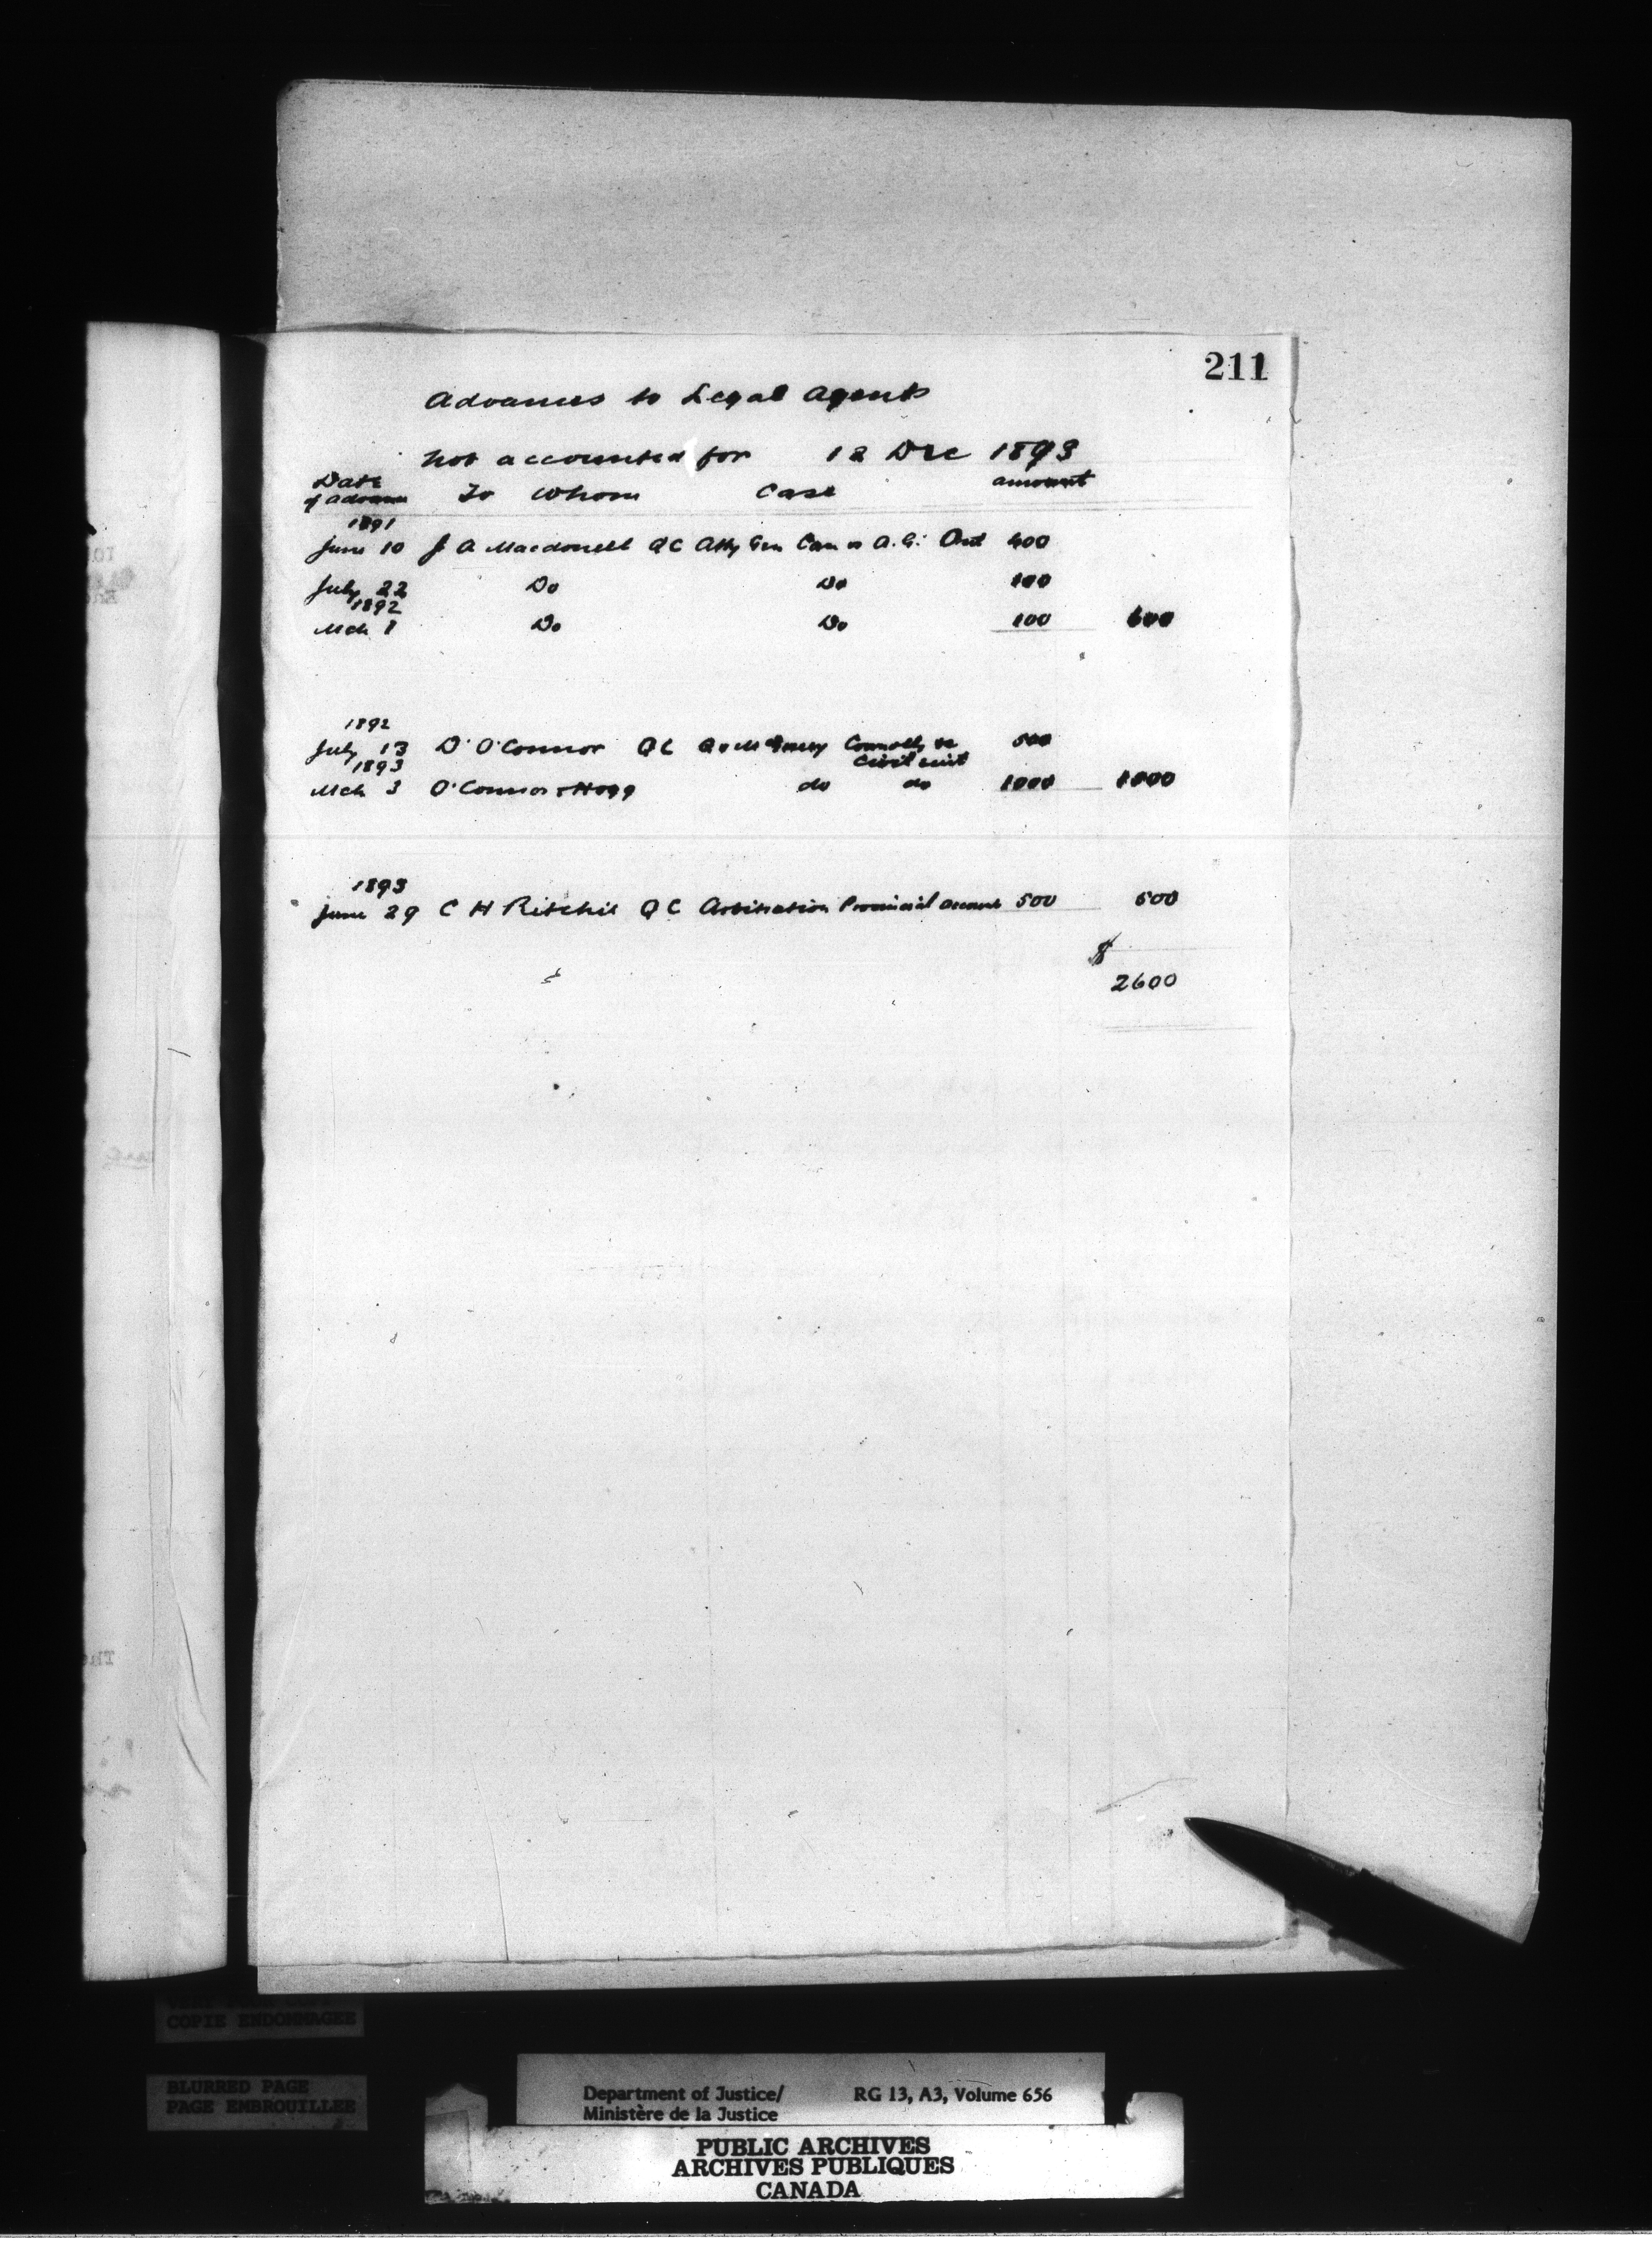 211
Advances to Legal Agents
not accounted for 12 Dec 1893
Date of advance To Whom Case amount
1891
June 10 J A Macdonell QC Atty Gen Can v A.G. Ont 400
July 22 Do Do 100
1892
Mch 1 Do Do 100 600
1892
July 13 D O'Connor QC Q v McGreevy Connolly 500
Civil suit
1893
Mch 3 O'Connor & Hogg do do 1000
1893
June 29 C H Ritchie QC Arbitration Provincial account 500 500
$
2600
COPIE ENDOMMAGEE
BLURRED PAGE
PAGE EMBROUILLEE
Department of Justice/ RG 13, A3, Volume 656
Ministère de la Justice
PUBLIC ARCHIVES
ARCHIVES PUBLIQUES
CANADA